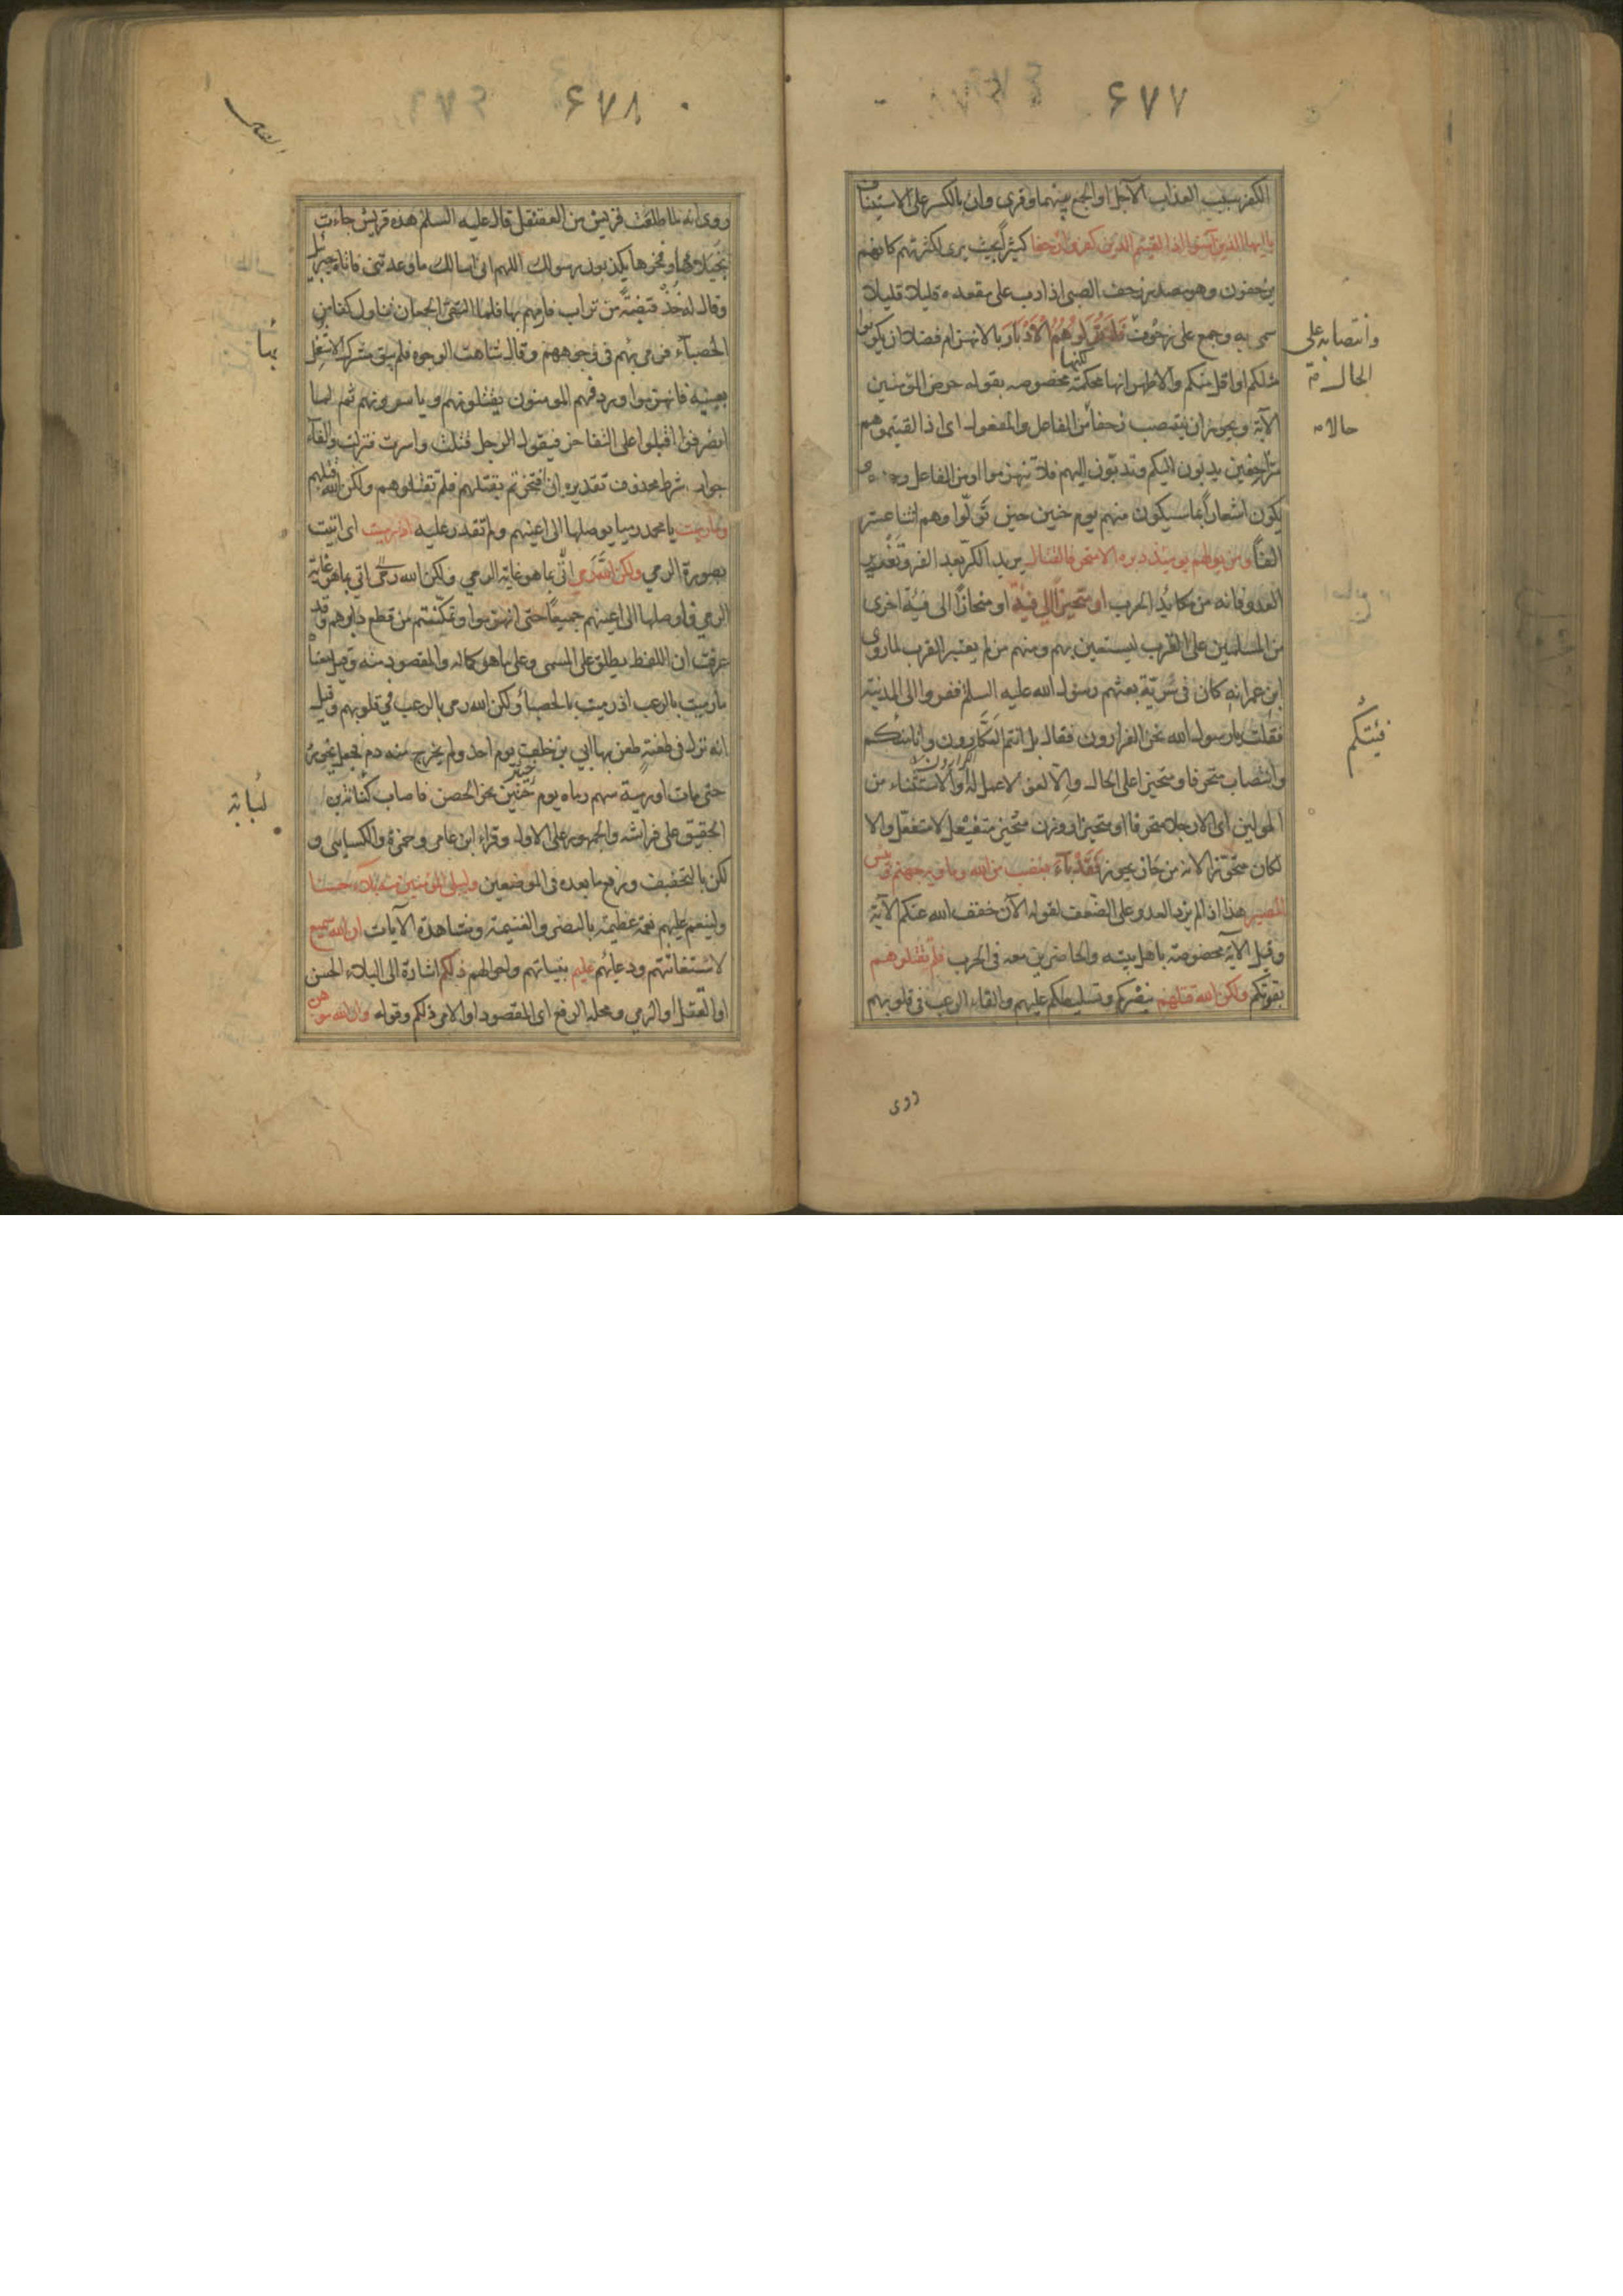 ۶۷۷
الكفر سبب العذاب الآجل او الجمع بينهما وقرئ وان بالكسر على الاستيناف
يا ايها الذين آمنوا اذا لقيتم الذين كفروا زحفا كثيراً بحيث يرى لكثرتهم كانهم
يزحفون وهو مصدر زحف الصبى اذا دب على مقعده قليلا قليلا
سمى به وجمع على زحوف فَلَا تُوَلُّوهُمُ الْأَدْبَارَ بالانهزام فضلا ان يكونوا
مثلكم او اقل منكم والاظهر انها محكمة مخصوصه بقوله حرض المؤمنين
لكنها
الآية ويجوز ان ينتصب زحفاً من الفاعل والمفعول اى اذا لقيتموهم
متزاحفين يدبون اليكم وتدبون اليهم فلا تنهزموا او من الفاعل وحده
يكون اشعاراً بما سيكون منهم يوم حنين حين تَولّوا وهم اثنا عشر
الفاً ومن يولهم يومئذ دبره الا متحرفا لقتال يريد الكرّ بعد الفر وتغرير
العدو فانه من مكايد الحرب او متحيزاً الى فئة او منحازاً الى فئة اخرى
من المسلمين على القرب ليستعين بهم ومنهم من لم يعتبر القرب لما روى
ابن عمر انه كان فى سرية بعثهم رسول الله عليه السلم ففروا الى المدينة
فقلت يا رسول الله نحن الفرارون فقال بل انتم العكارون وانا فئتكم
وانتصاب متحرفا ومتحيزا على الحال والا لغو لا عمل له او الاستثناء من
المولين اى الا رجلا متحرفا او متحيزا ووزن متحيز متفيعل لا متفعل والا
لكان متحوزا لانه من حاز يحوز فَقَدْ بَآءَ بغضب من الله ومأويه جهنم وبئس
المصير هذا اذا لم يزد العدو على الضعف لقوله الآن خفف الله عنكم الآية
وقيل الآية مخصوصة باهل بيته والحاضرين معه فى الحرب فلم تقتلوهم
بقوتكم ولكن الله قتلهم بنصركم وتسليطكم عليهم والقاء الرعب فى قلوبهم
وانتصابه على
الحال
حالا
فئتكم
روى
۶۷۸
روى انه لما طلعت قريش من العقنقل قال عليه السلم هذه قريش جاءت
بخيلائها وفخرها يكذبون رسولك اللهم انى اسألك ما وعدتنى فاتاه جبرئيل
وقال له خذ قبضة من تراب فارمهم بها فلما التقى الجمعان تناول كفا من
الحصبآء فرمى بهم فى وجوههم وقال شاهت الوجوه فلم يبق مشرك الا شغل
بعينيه فانهزموا وردفهم المومنون يقتلونهم وياسرونهم ثم لما
انصرفوا اقبلوا على التفاخر فيقول الرجل قتلت واسرت فنزلت والفآء
جواب شرط محذوف تقديره ان افتخرتم بقتلهم فلم تقتلوهم ولكن الله قتلهم
وما رميت يا محمد رميا يوصلها الى اعينهم ولم تقدر عليه اذ رميت اى اتيت
بصورة الرمي ولكن الله رمى اتى بما هو غاية الرمي ولكن الله رمى اتى بما هو غاية
الرمي فاوصلها الى اعينهم جميعاً حتى انهزموا وتمكنتم من قطع دابرهم وقد
عرفت ان اللفظ يطلق على المسمى وعلى ما هو كماله والمقصود منه وقيل معناه
ما رميت بالرعب اذ رميت بالحصبآء ولكن الله رمى بالرعب فى قلوبهم وقيل
انه نزل فى طعنةٍ طعن بها ابي بن خلف يوم احد ولم يخرج منه دم فجعل يخور
حتى مات او رمية سهم رماه يوم حنين نحو الحصن فاصاب كنانة بن
خيبر
الحقيق على فراشه والجمهور على الاول وقراء ابن عامر وحمزة والكسائى و
لكن بالتخفيف ورفع ما بعده فى الموضعين وليبلى المؤمنين منه بلآء حسنا
ولينعم عليهم نعمة عظيمة بالنصر والغنيمة ومشاهدة الآيات ان الله سميع
لاستغاثتهم ودعائهم عليم بنياتهم واحوالهم ذلكم اشارة الى البلاء الحسن
او القتل او الرمى ومحله الرفع اى المقصود او الامر ذلكم وقوله وان الله موهن